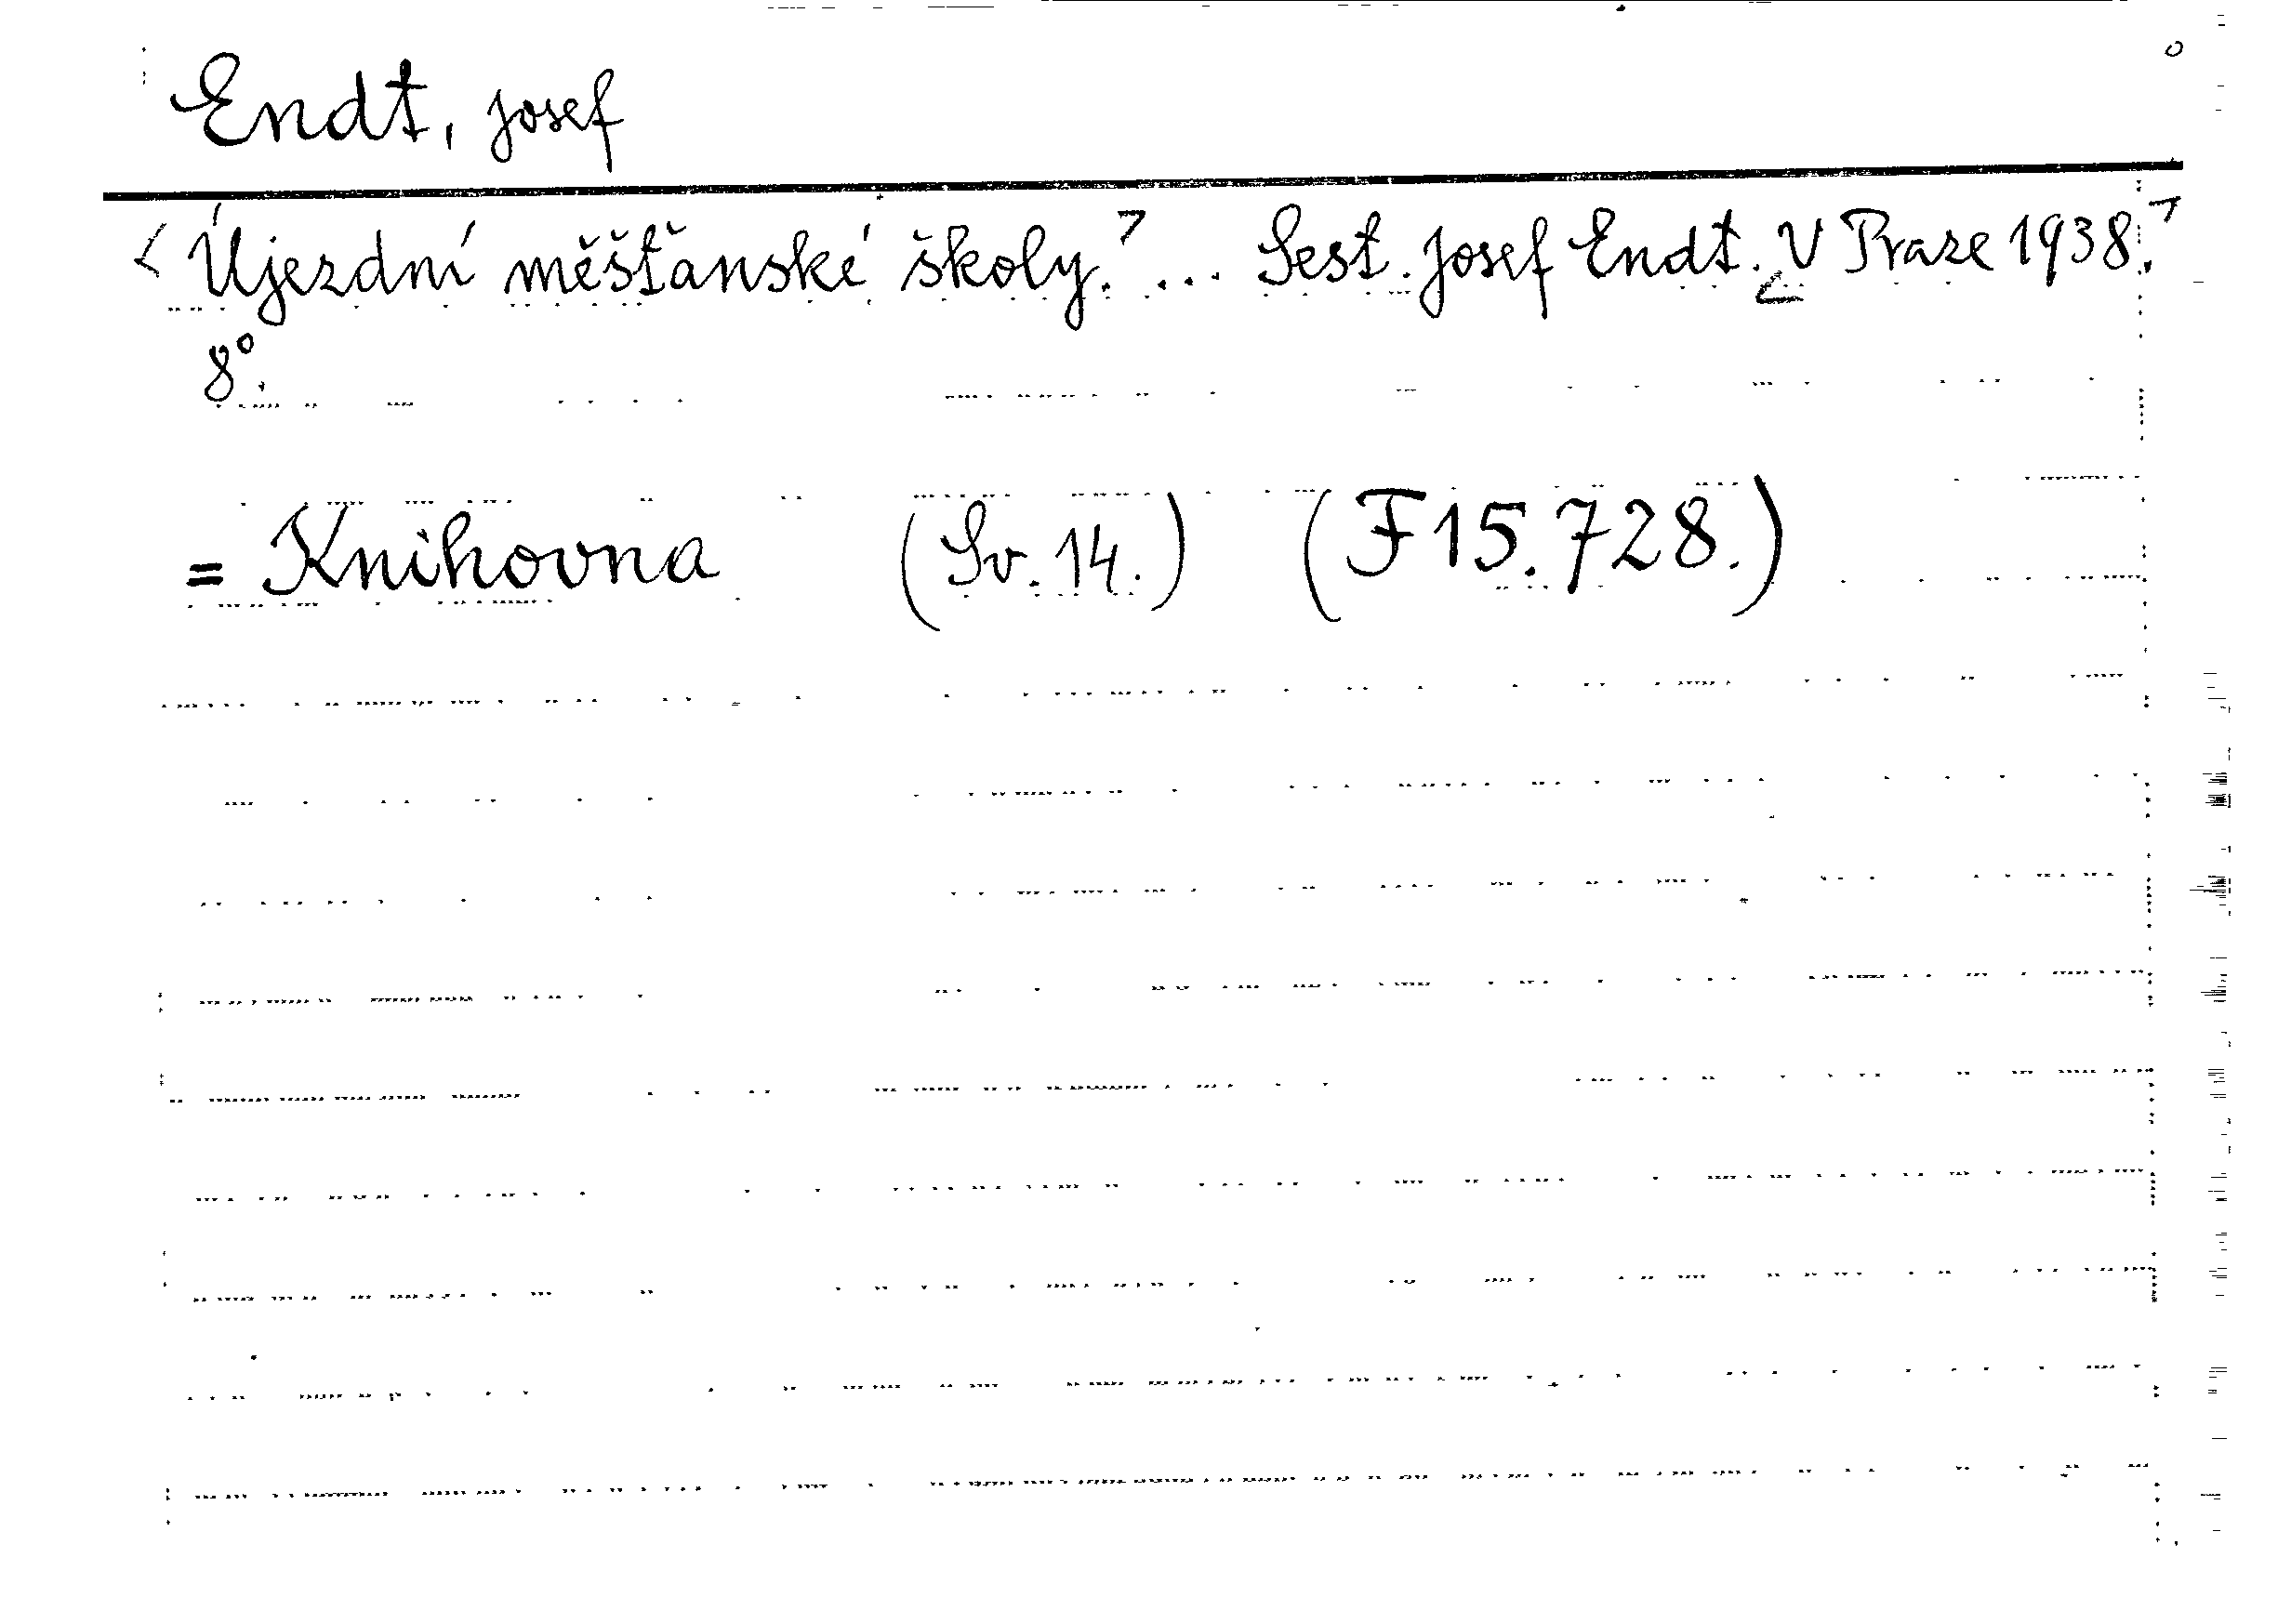 Endt, Josef
<Újezdní měšťanské školy.> ... Sest. Josef Endt. <V Praze 1938.>
8°.
= Knihovna (Sv. 14.) (F 15.728.)